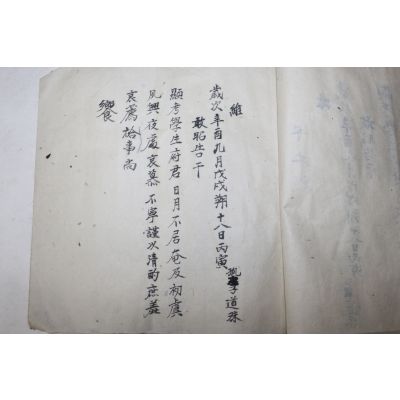 維
歲次辛酉九月戊戌朔十八日丙寅孤子道
敢昭告于
顯考學生府君日月不居奄及初虞
夙興夜處哀慕不寧謹以清酌庶羞
哀薦祫事尚
饗